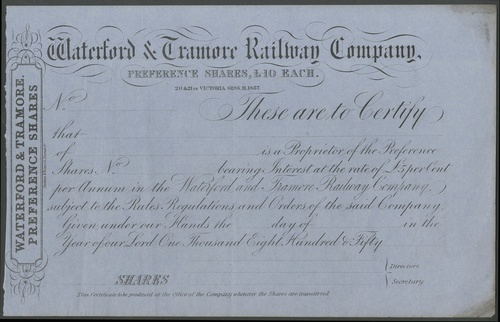 Waterford & Tramore Railway Company.
PREFERENCE SHARES, £10 EACH.
20 & 21st VICTORIA SESS. II. 1857.
WATERFORD & TRAMORE.
PREFERENCE SHARES
No
These are to Certify
that
of is a Proprietor of the Preference
Shares No bearing Interest at the rate of £5 per Cent
per Annum in the Waterford and Tramore Railway Company,
subject to the Rules, Regulations and Orders of the said Company.
Given under our Hands the day of in the
Year of our Lord One Thousand Eight Hundred & Fifty
Directors
SHARES
Secretary
This Certificate to be produced at the Office of the Company whenever the Shares are transferred